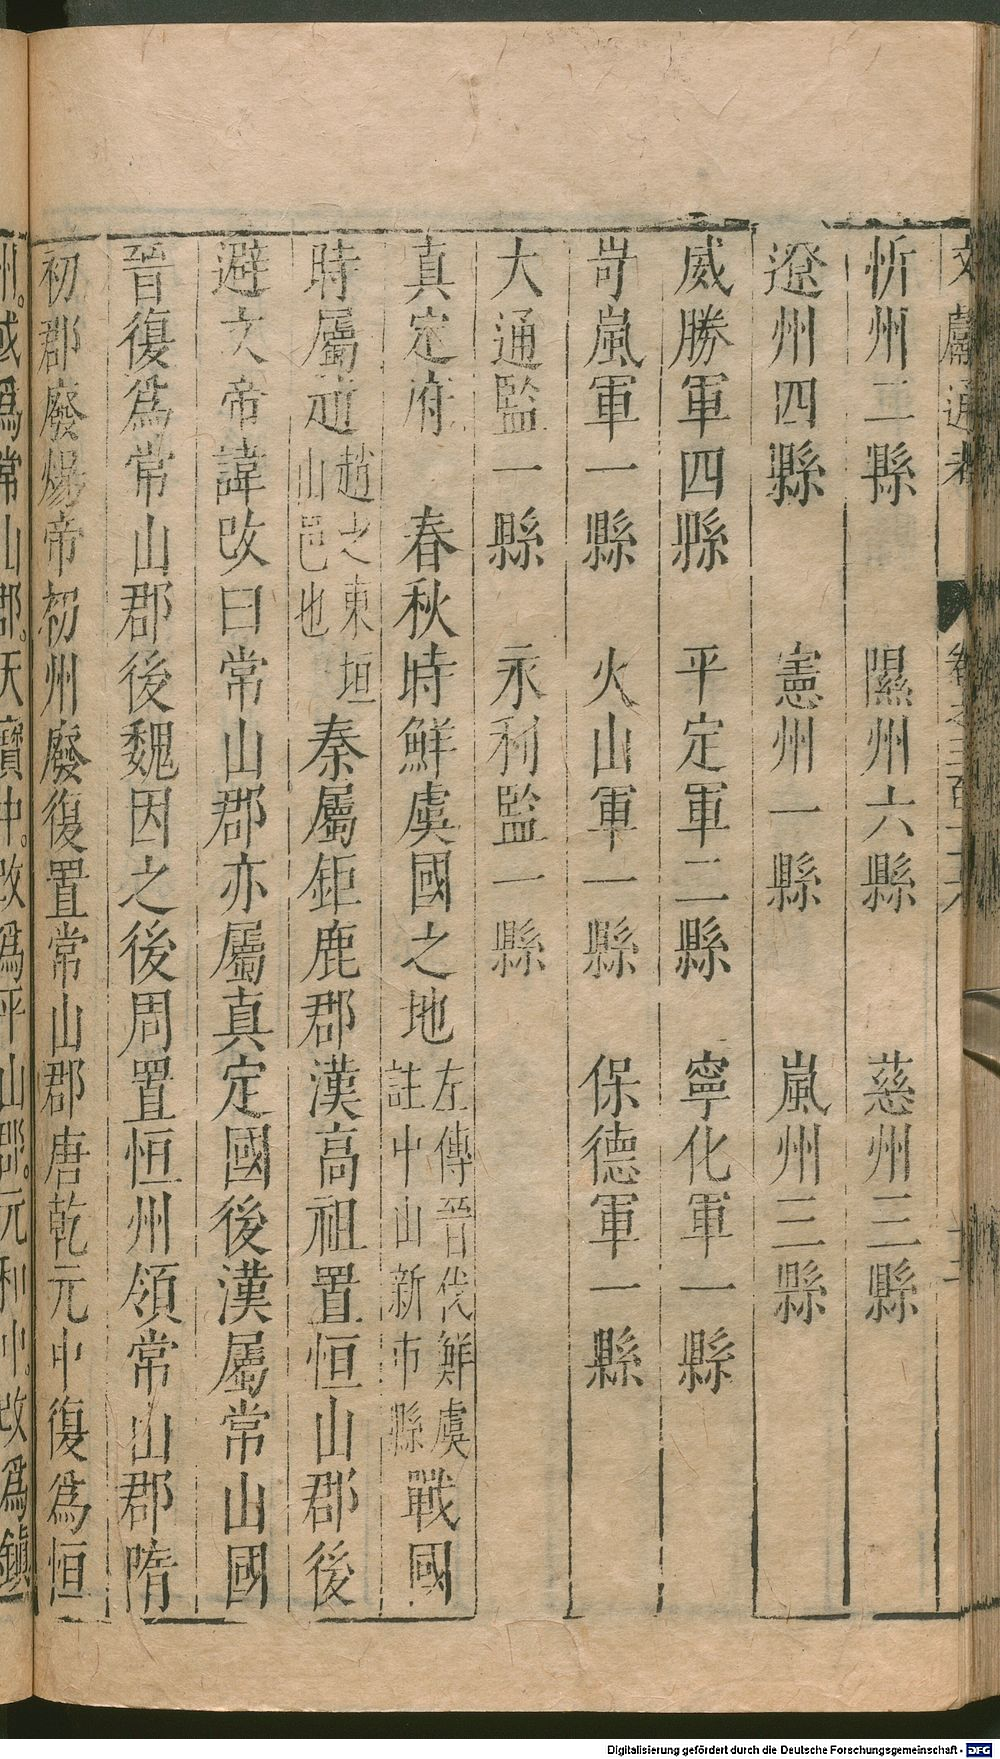 忻州二縣　隰州六縣　慈州三縣
遼州四縣　憲州一縣　嵐州三縣
威勝軍四縣　平定軍二縣　寧化軍一縣
岢嵐軍一縣　火山軍一縣　保德軍一縣
大通監一縣　永利監一縣
真定府　春秋時鮮虞國之地左傳晉伐鮮虞註中山新市縣戰國
時屬趙趙之東垣山邑也秦屬鉅鹿郡漢高祖置恒山郡後
避文帝諱改曰常山郡亦屬真定國後漢屬常山國
晉復爲常山郡後魏因之後周置恒州領常山郡隋
初郡廢煬帝初州廢復置常山郡唐乾元中復爲恒
州。或爲常山郡。天寶中。改爲平山郡。元和中。改爲鎮
文獻通考
Digitalisierung gefördert durch die Deutsche Forschungsgemeinschaft - DFG